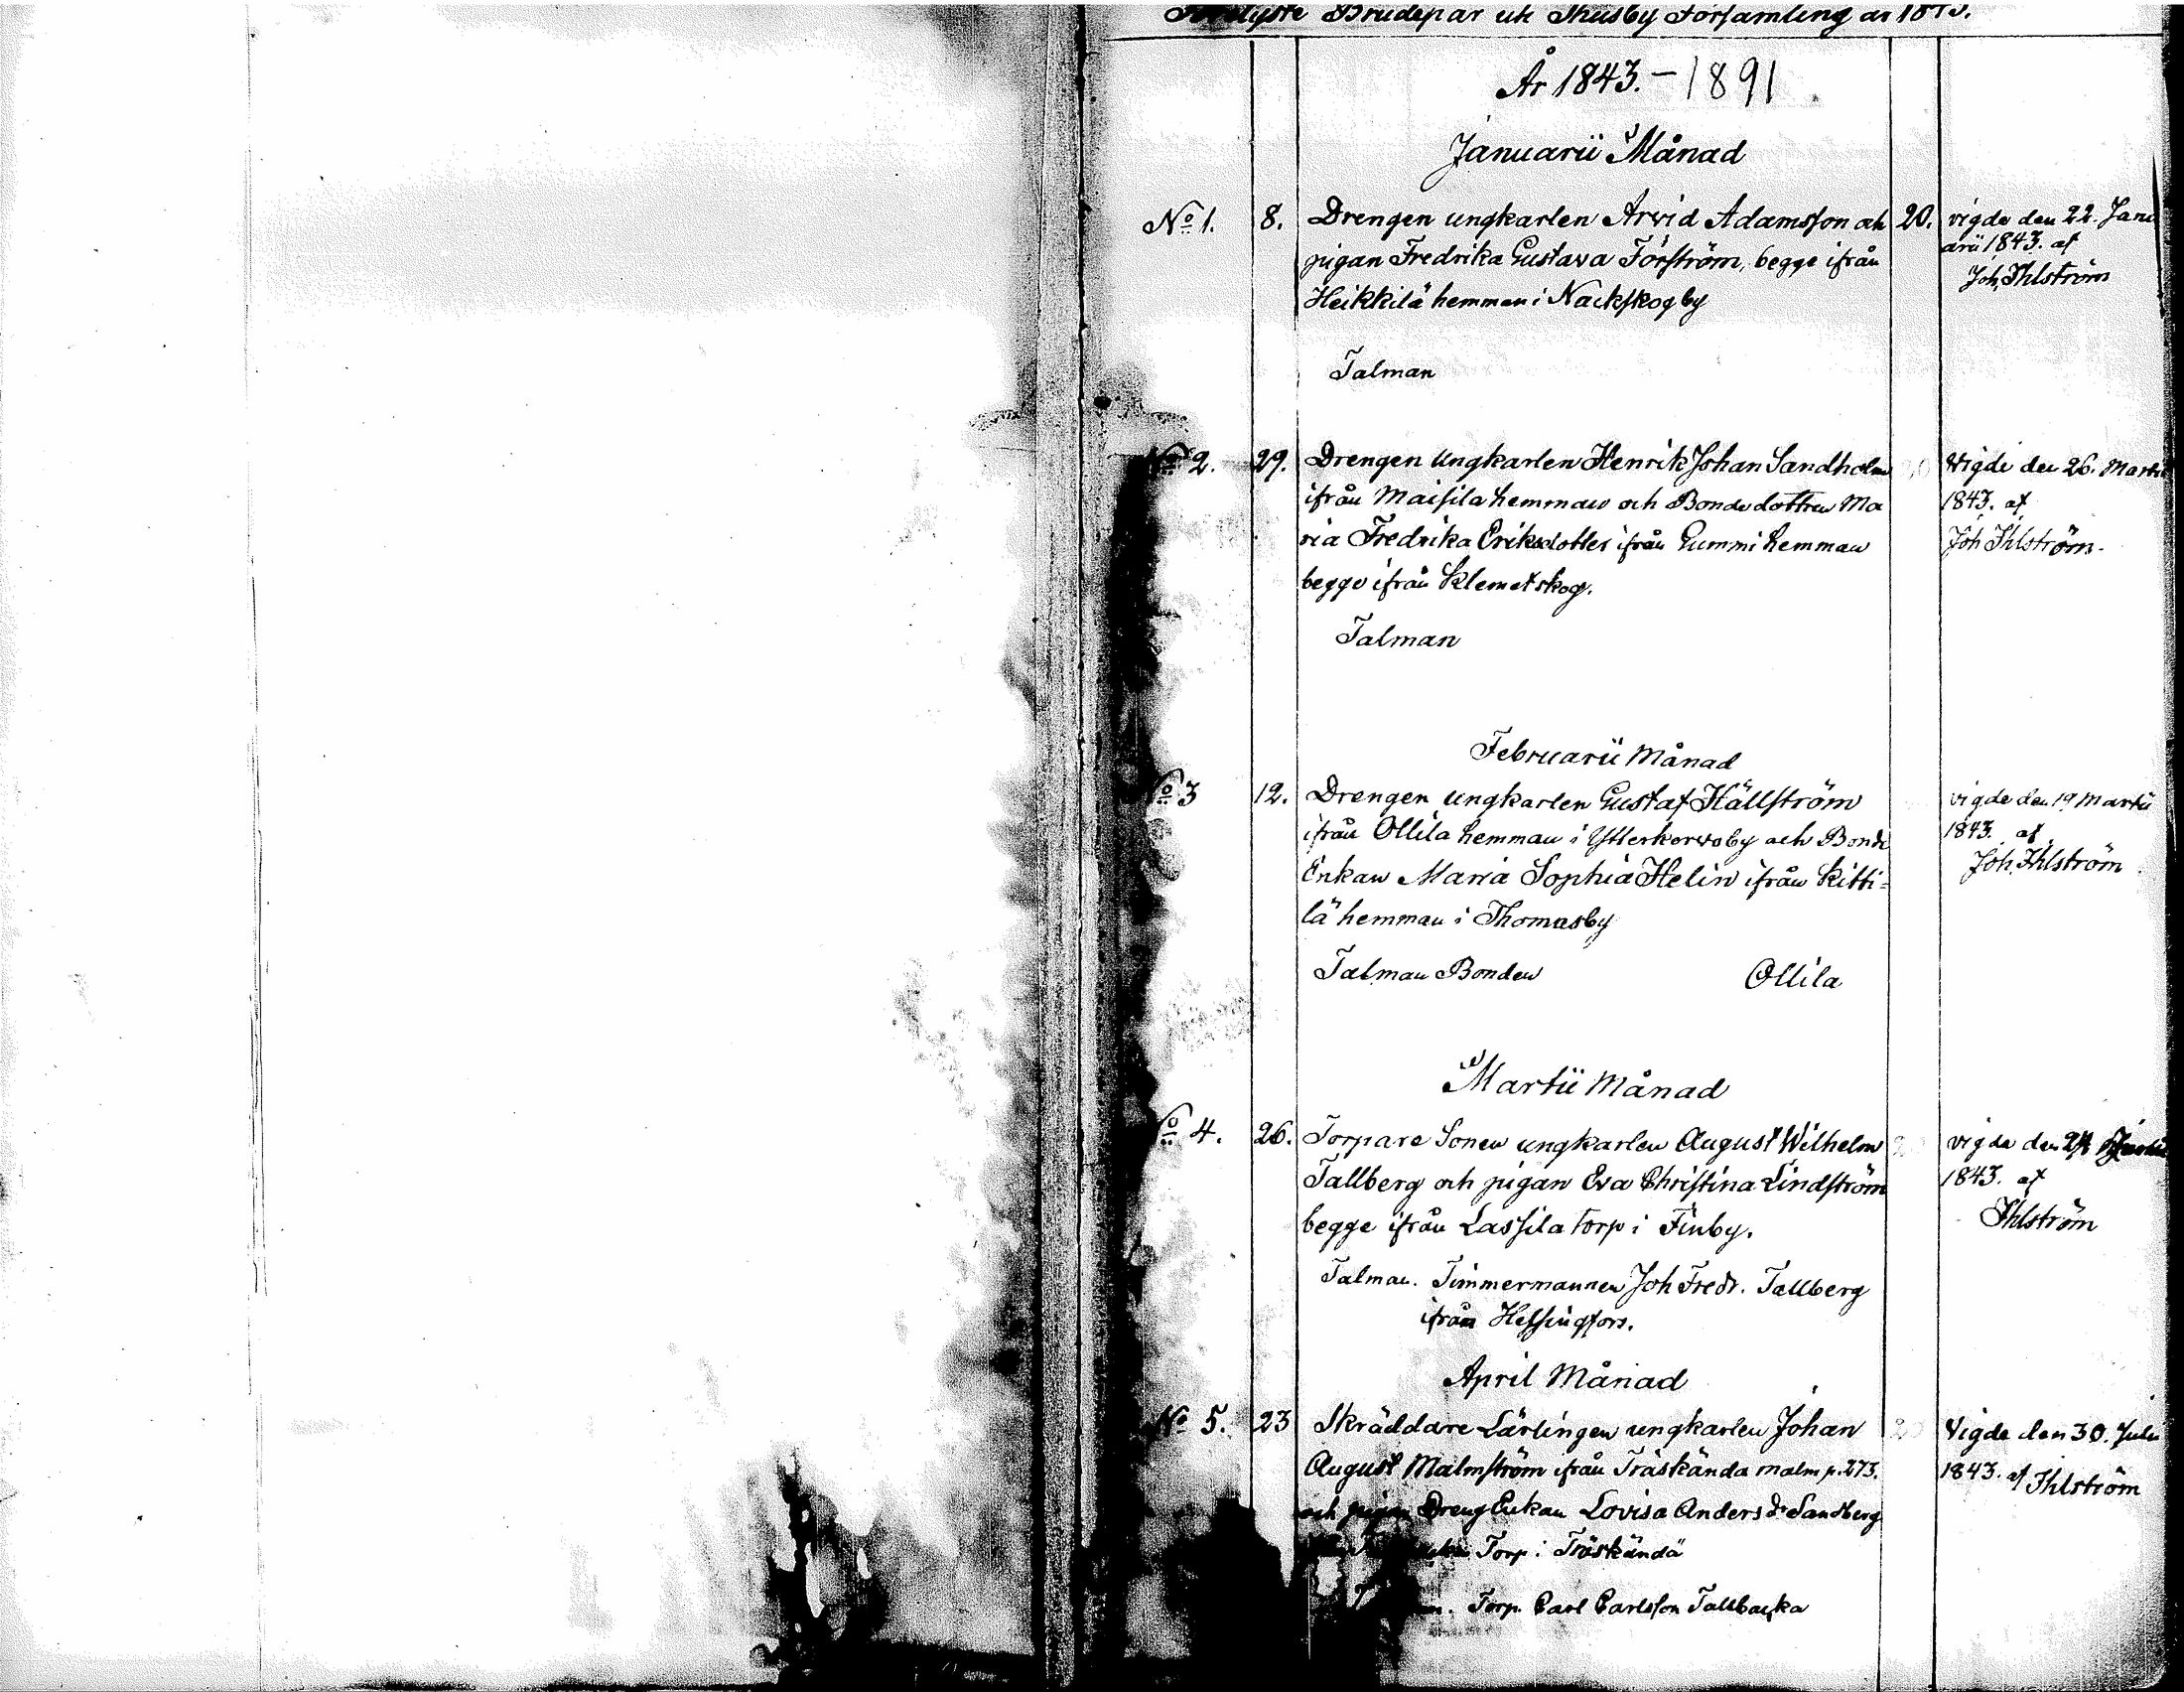 Brudepar uti Thusby Församling år 1843.
År 1843. - 1891
Januarii Månad
No 1. 8. Drengen ungkarlen Arvid Adamsson och 20. vigde den 22. Janu
pigan Fredrika Gustava Forsström, begge ifrån arii 1843. af
Heikkilä hemman i Nackskogby Joh. Ihlström
Talman
No 2. 29. Drengen Ungkarlen Henrik Johan Sandholm Vigde den 26. Martii
ifrån Maisila hemman och Bondedottren Ma 1843. af
ria Fredrika Eriksdotter ifrån Gummi hemman Joh Ihlström.
begge ifrån Klemetskog.
Talman
Februarii Månad
No 3 12. Drengen ungkarlen Gustaf Hällström vigde den 19 Martii
ifrån Ollila hemman i Ytterkervoby och Bonde 1843. af
Enkan Maria Sophia Helin ifrån Kitti= Joh. Ihlström
lä hemman i Thomasby
Talman Bonden Ollila
Martii Månad
No 4. 26. Torpare Sonen ungkarlen August Wilhelm vigde den
Tallberg och pigan Eva Christina Lindström 1843. af
begge ifrån Lassila torp i Finby. Ihlström
Talman. Timmermannen Joh Fredr. Tallberg
ifrån Helsingfors.
April Månad
No 5. 23 Skräddare Lärlingen ungkarlen Johan 20 Vigde den 30. Julii
August Malmström ifrån Träskända malm p. 273. 1843. af Ihlström
och pigan Dreng Enkan Lovisa Anders dr Sandberg
Torp i Träskändä
Torp. Carl Carlsson Tallbacka